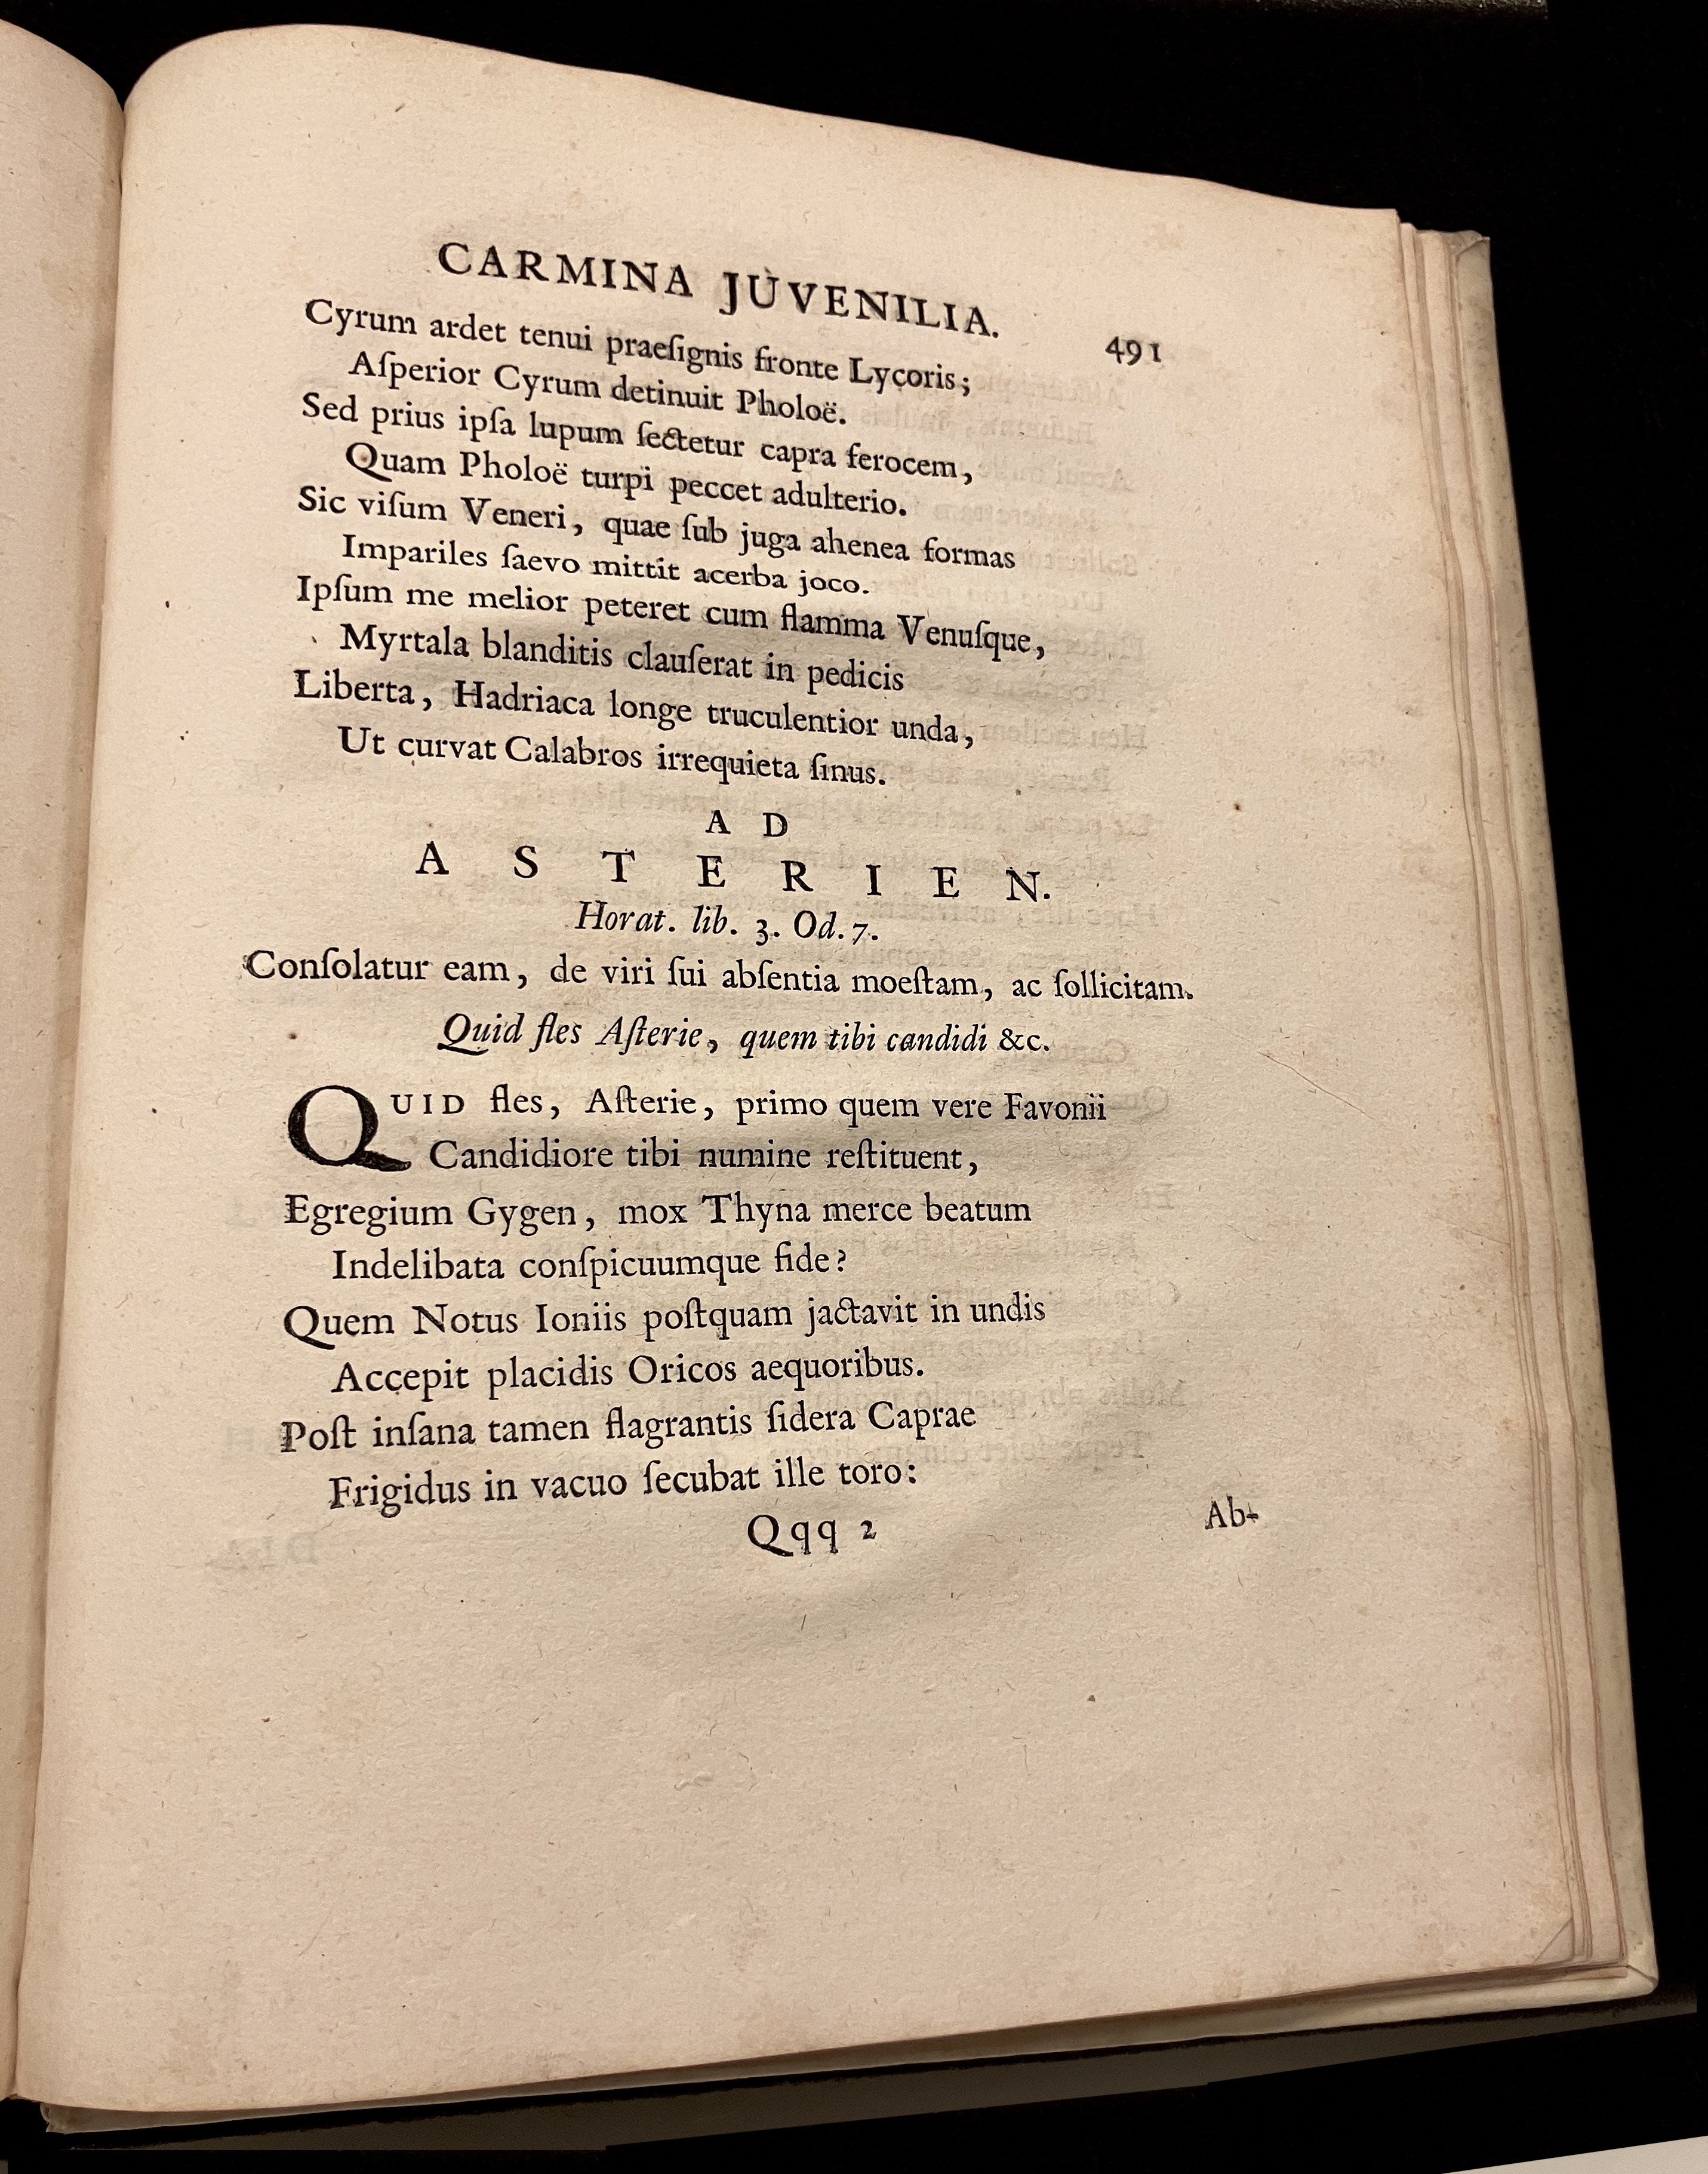 CARMINA JUVENILIA. 491
Cyrum ardet tenui praeſignis fronte Lycoris;
Aſperior Cyrum detinuit Pholoë.
Sed prius ipſa lupum ſectetur capra ferocem,
Quam Pholoë turpi peccet adulterio.
Sic viſum Veneri, quae ſub juga ahenea formas
Impariles ſaevo mittit acerba joco.
Ipſum me melior peteret cum flamma Venuſque,
Myrtala blanditis clauſerat in pedicis
Liberta, Hadriaca longe truculentior unda,
Ut curvat Calabros irrequieta ſinus.
A D
A S T E R I E N.
Horat. lib. 3. Od. 7.
Conſolatur eam, de viri ſui abſentia moeſtam, ac ſollicitam.
Quid fles Aſterie, quem tibi candidi &c.
QUID fles, Aſterie, primo quem vere Favonii
Candidiore tibi numine reſtituent,
Egregium Gygen, mox Thyna merce beatum
Indelibata conſpicuumque fide?
Quem Notus Ioniis poſtquam jactavit in undis
Accepit placidis Oricos aequoribus.
Poſt inſana tamen flagrantis ſidera Caprae
Frigidus in vacuo ſecubat ille toro:
Qqq 2 Ab-